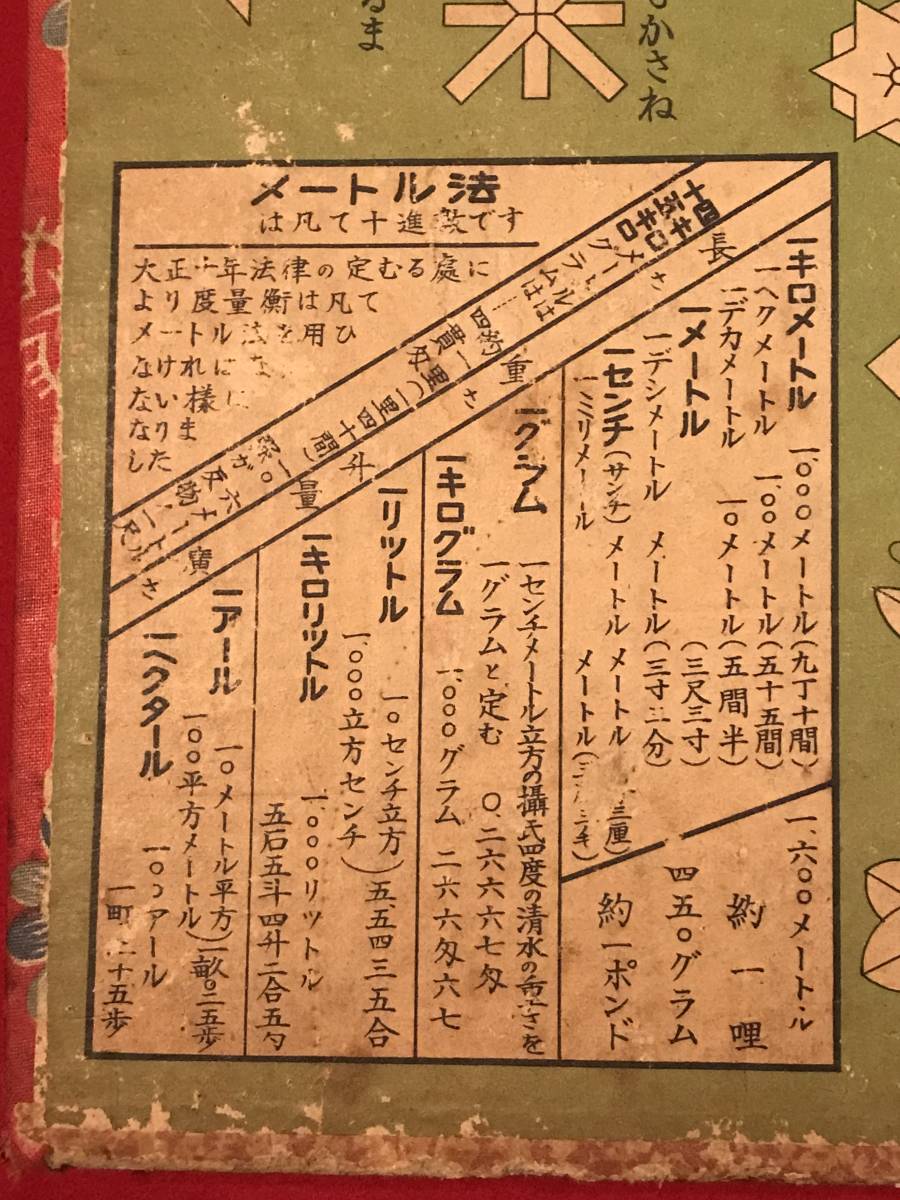 るま
かさね
メートル法
は凡て十進数です
大正十年法律の定むる處に
より度量衡は凡て
メートル法を用ひ
なければな
ない様に
なりま
した
十四キロ
五キロ
メートルは
グラムは
四貫
一里(一里四十間)
長さ
一キロメートル 一、〇〇〇メートル(九丁十間)
一ヘクメートル 一〇〇メートル(五十五間)
一デカメートル 一〇メートル(五間半)
一メートル (三尺三寸)
一デシメートル メートル(三寸三分)
一センチ(サンチ)メートル メートル 三厘)
一ミリメール メートル(三 三毛)
一、六〇〇メートル
約一哩
四五〇グラム
約一ポンド
重さ
一グラム 一センチメートル立方の攝氏四度の清水の重さを
一グラムと定む 〇.二六六六七匁
一キログラム 一、〇〇〇グラム 二六六匁六七
斗量
一リットル 一〇センチ立方)五.五四三五合
一、〇〇〇立方センチ)
一キロリットル 一、〇〇〇リットル
五石五斗四升二合五勺
廣さ
一アール 一〇メートル平方)一畝〇二五歩
一〇〇平方メートル)
一ヘクタール 一〇〇アール
一町 二十五歩